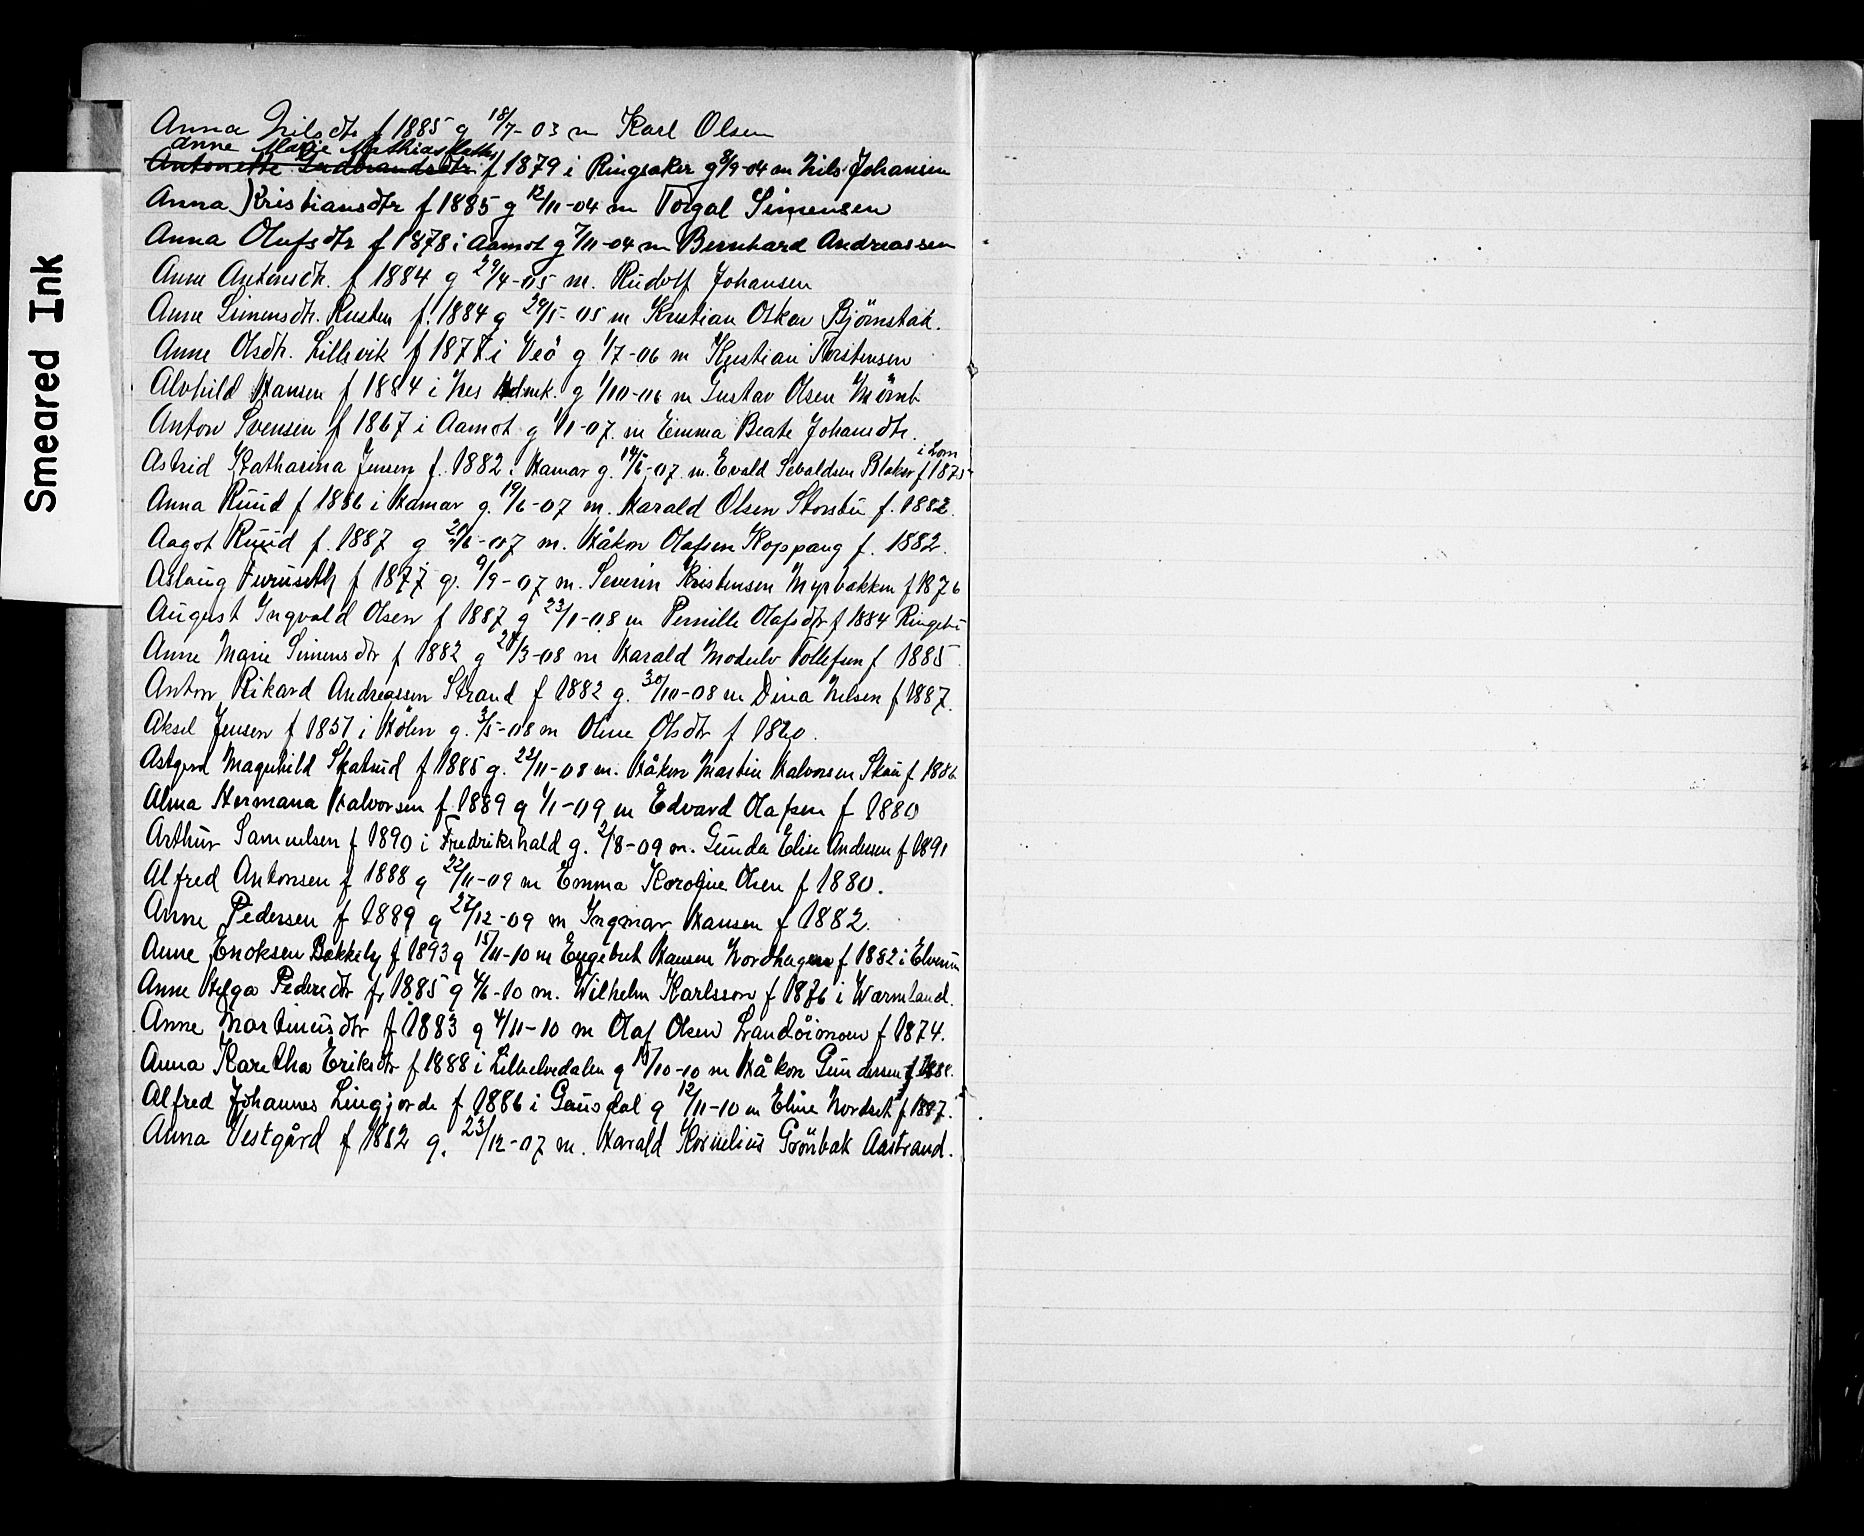 Smeared Ink
Anna Nilsdtr f 1885 g 18/7-03 m Karl Olsen
Anne Marie Mathiasdatter
Antonette Gudbrandsdtr f 1879 i Ringsaker g 8/9-04 m Nils Johansen
Anna Kristiansdtr f 1885 g 12/11-04 m Torgal Simensen
Anna Olufsdtr f 1878 i Aamot g 7/11-04 m Bernhard Andreassen
Anne Antonsdtr. f 1884 g 29/4-05 m. Rudolf Johansen
Anne Simensdtr. Rusten f. 1884 g 29/5-05 m Kristian Oskar Björnstad.
Anne Olsdtr. Lillevik f 1877 i Veö g 1/7-06 m Kristian Torstensen
Alvhild Hansen f 1884 i Nes Hedmk. g 1/10-06 m Gustav Olsen
Anton Svensen f 1867 i Aamot g 1/1-07. m Emma Beate Johansdtr.
i Lom
Astrid Katharina Jensen f. 1882 i Hamar g. 14/5-07. m. Evald Sevaldsen Blaker f 1875
Anna Ruud f 1886 i Hamar g. 19/6-07 m. Harald Olsen Storstu f. 1882.
Aagot Ruud f. 1887 g 20/6-07 m. Håkon Olafsen Koppang f. 1882.
Aslaug Furuseth f 1877 g. 9/9-07 m. Severin Kristensen Myrbakken f 1876
August Ingvald Olsen f 1887 g 23/1-08 m Pernille Olafsdtr f 1884 Ringebu
Anne Marie Simensdtr f 1882 g 28/3-08 m Harald Modulv Tollefsen f 1885.
Anton Rikard Andreassen Strand f 1882 g. 30/10-08 m Dina Nilsen f 1887.
Aksel Jensen f 1857 i g. 3/5-08 m Oline Olsdtr f 1860.
Astgerd Magnhild Skatrud f 1885 g. 22/11-08 m. Håkon Martin Halvorsen Skau f 1886
Alma Hermana Halvorsen f. 1889 g 1/1-09 m Edvard Olafsen f 1880
Arthur Samuelsen f 1890 i Fredrikshald g. 2/8-09 m. Gunda Elise Andersen f 1891
Alfred Antonsen f 1888 g 22/11-09 m Emma Karoline Olsen f 1880.
Anne Pedersen f 1889 g 27/12-09 m Ingmar Hansen f 1882.
Anne Enoksen Bakkely f 1893 g 15/11-10 m Engebret Hansen Nordhagen f 1882 i Elverum
Anne Helga Pedersdtr f. 1885 g 4/6-10 m. Wilhelm Karlsson f 1876 i Wærmland.
Anne Martinusdtr f 1883 g 4/11-10 m Olaf Olsen Strandöimoen f 1874.
Anna Karetha Eriksdtr f 1888 i Lilleelvedalen g 15/10-10 m Håkon Gundersen f 1888.
Alfred Johannes Lingjorde f 1886 i Gausdal g 12/11-10 m Eline Nordset f 1887.
Anna Vestgård f 1882 g. 23/12-07 m. Harald Kornelius Grönbak Aastrand.